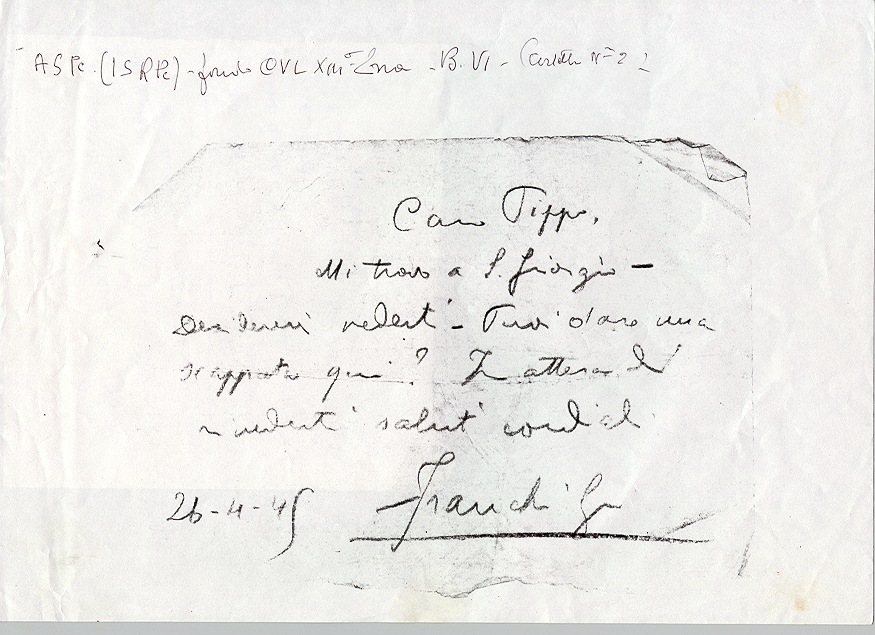 ASPc. (ISRPc) - fondo CVL XIIIª Zona - B. VI - Cartella n° 2
Caro Pippo,
Mi trovo a S. Giorgio —
Desidererei vederti - Puoi dare una
scappata qui? In attesa di
rivederti saluti cordiali
26-4-45 Franchi